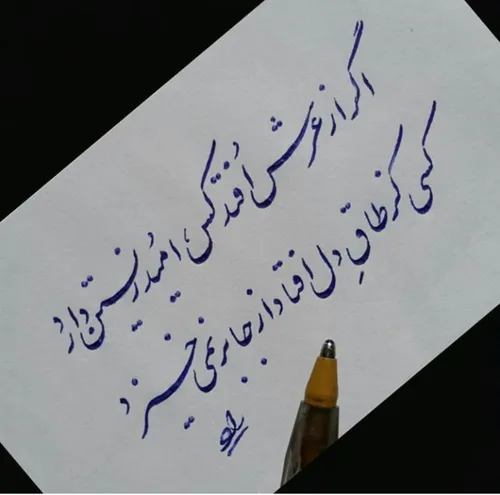 اگر از عرش اُفتد کس، امیدِ زیستن دارد
کسی کز طاقِ دل افتاد از جا برنمی خیزد